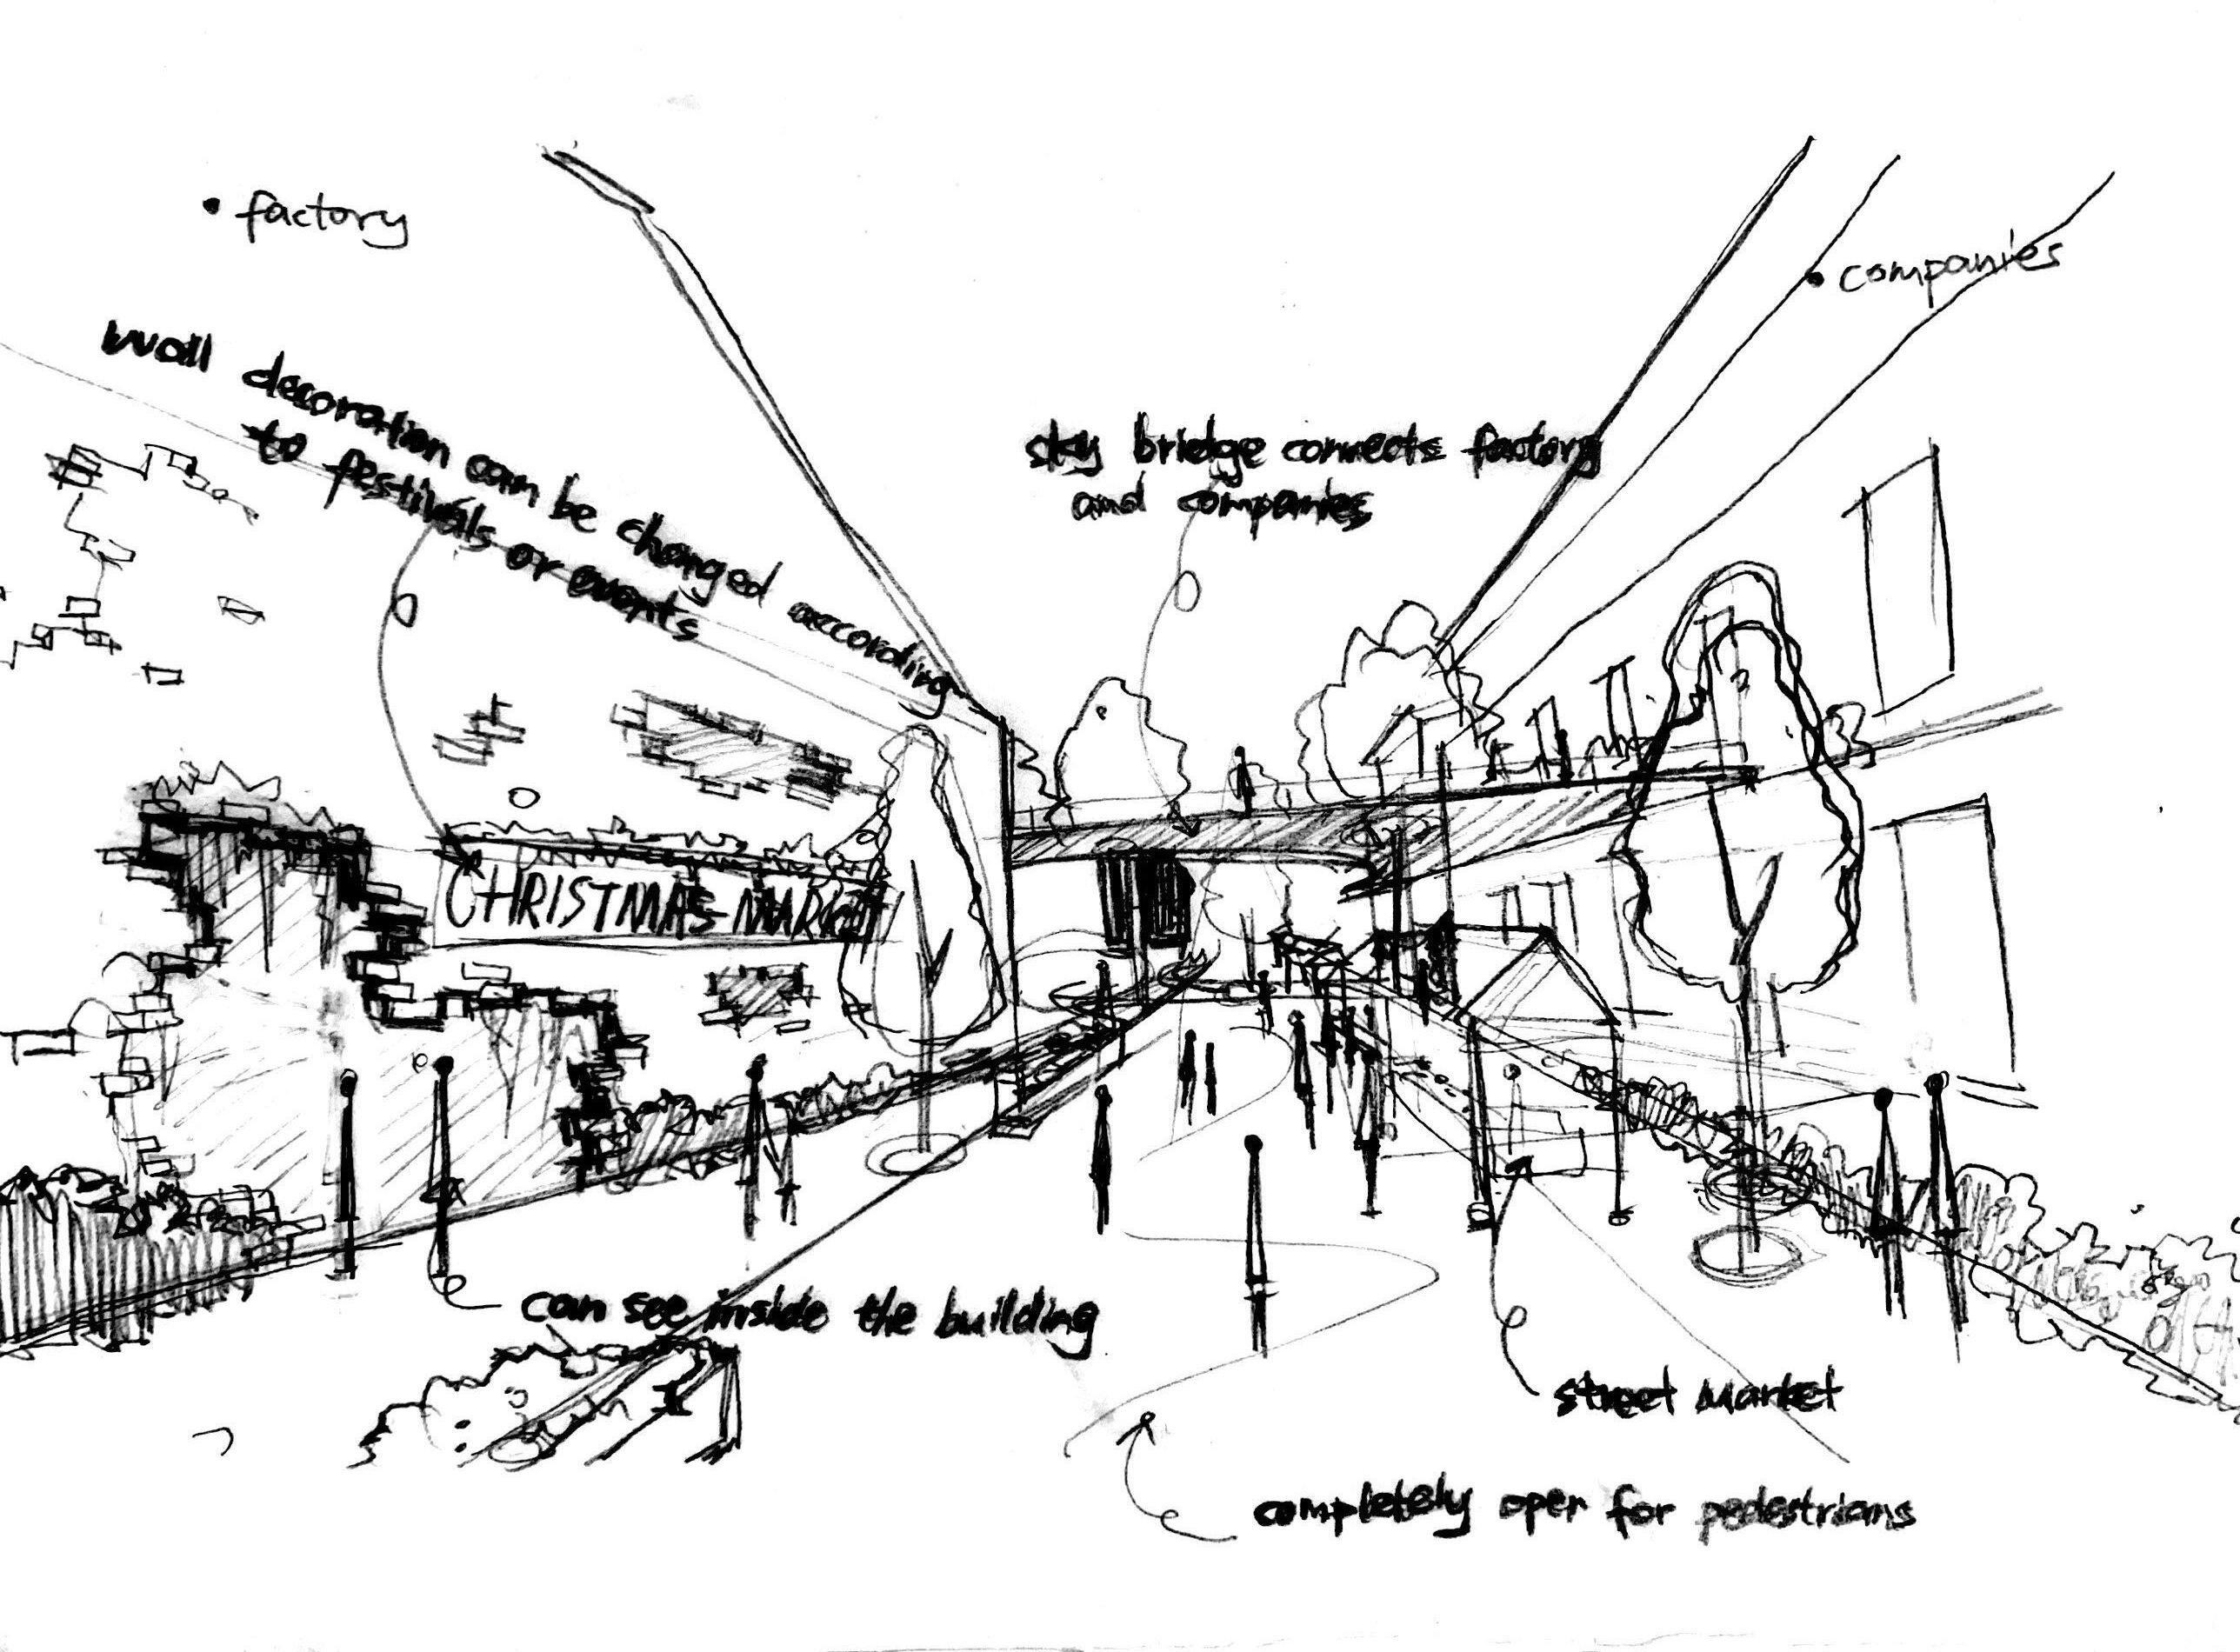 factory
companies
wall decoration can be changed according
to festivals or events
sky bridge connects factory
and companies
CHRISTMAS MARKET
can see inside the building
street market
completely open for pedestrians